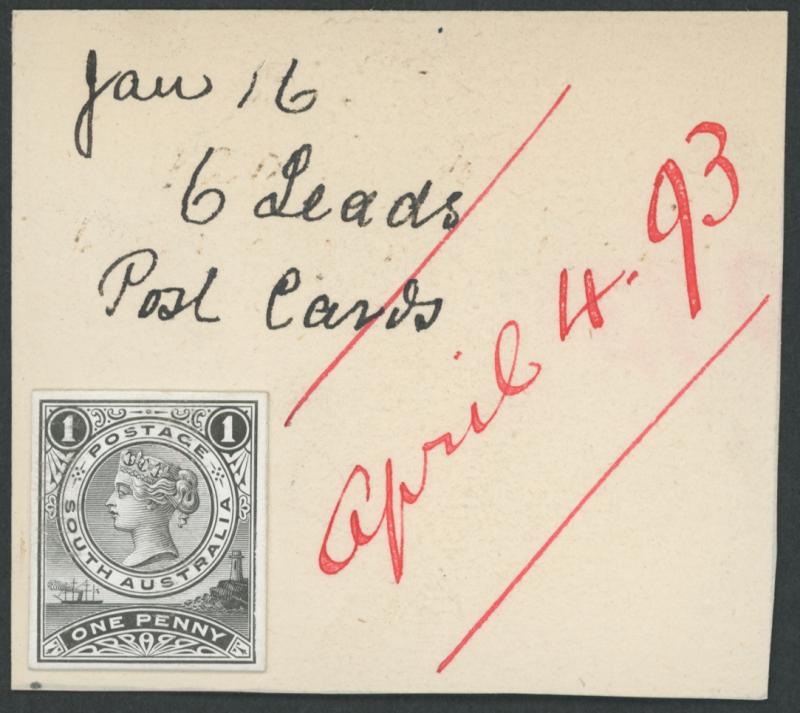 Jan 16
6 Leads
Post Cards
April 4. 93
1 1
POSTAGE
SOUTH AUSTRALIA
ONE PENNY